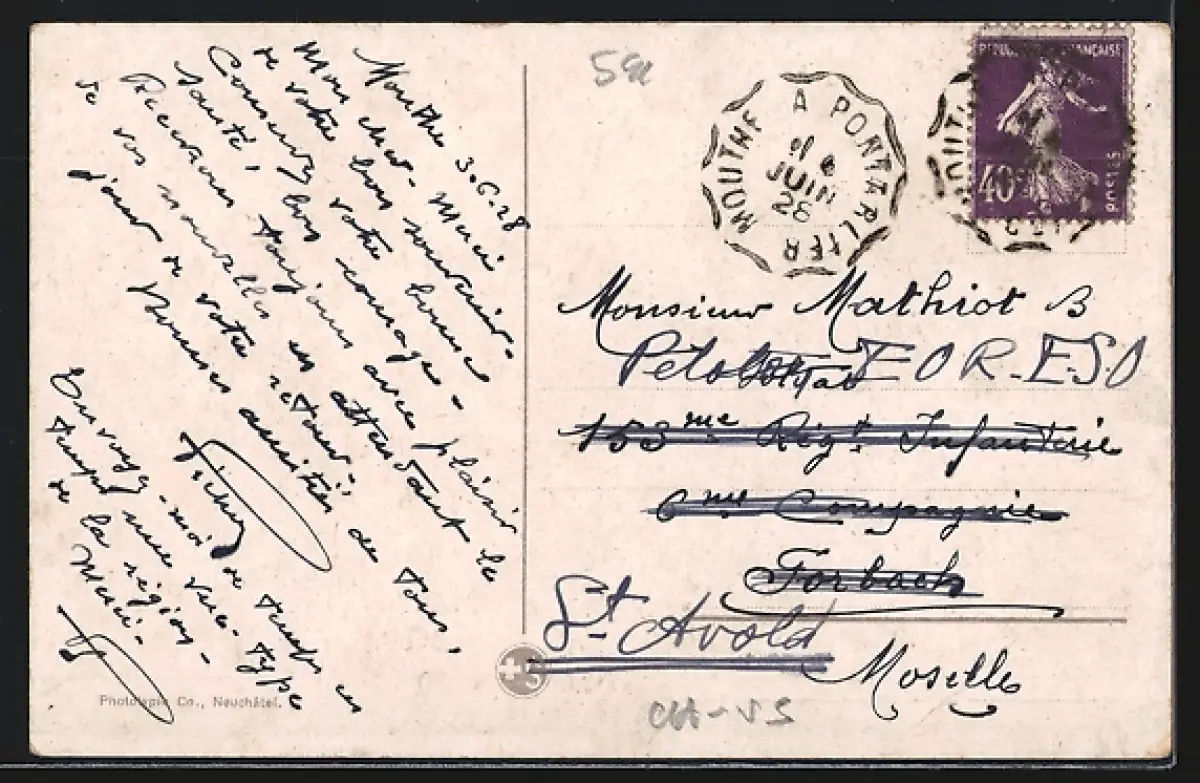 Mouthe 3.6.28
Mon cher - Merci
de votre bon souvenir -
Conservez votre bonne
santé, bon courage -
Recevrons toujours avec plaisir
de vos nouvelles en attendant le
jour de votre retour -
Bonnes amitiés de tous,
Envoyez-moi de temps en
temps une vue - type
de la région -
Merci -
Phototypie Co., Neuchâtel.
591
MOUTHE A PONTARLIER
JUIN
28
RÉPUBLIQUE FRANÇAISE
40c
POSTES
Monsieur Mathiot B
Peloton E O R - E.S.O
Soldat
153me Régt Infanterie
6me Compagnie
Forbach
St Avold
Moselle